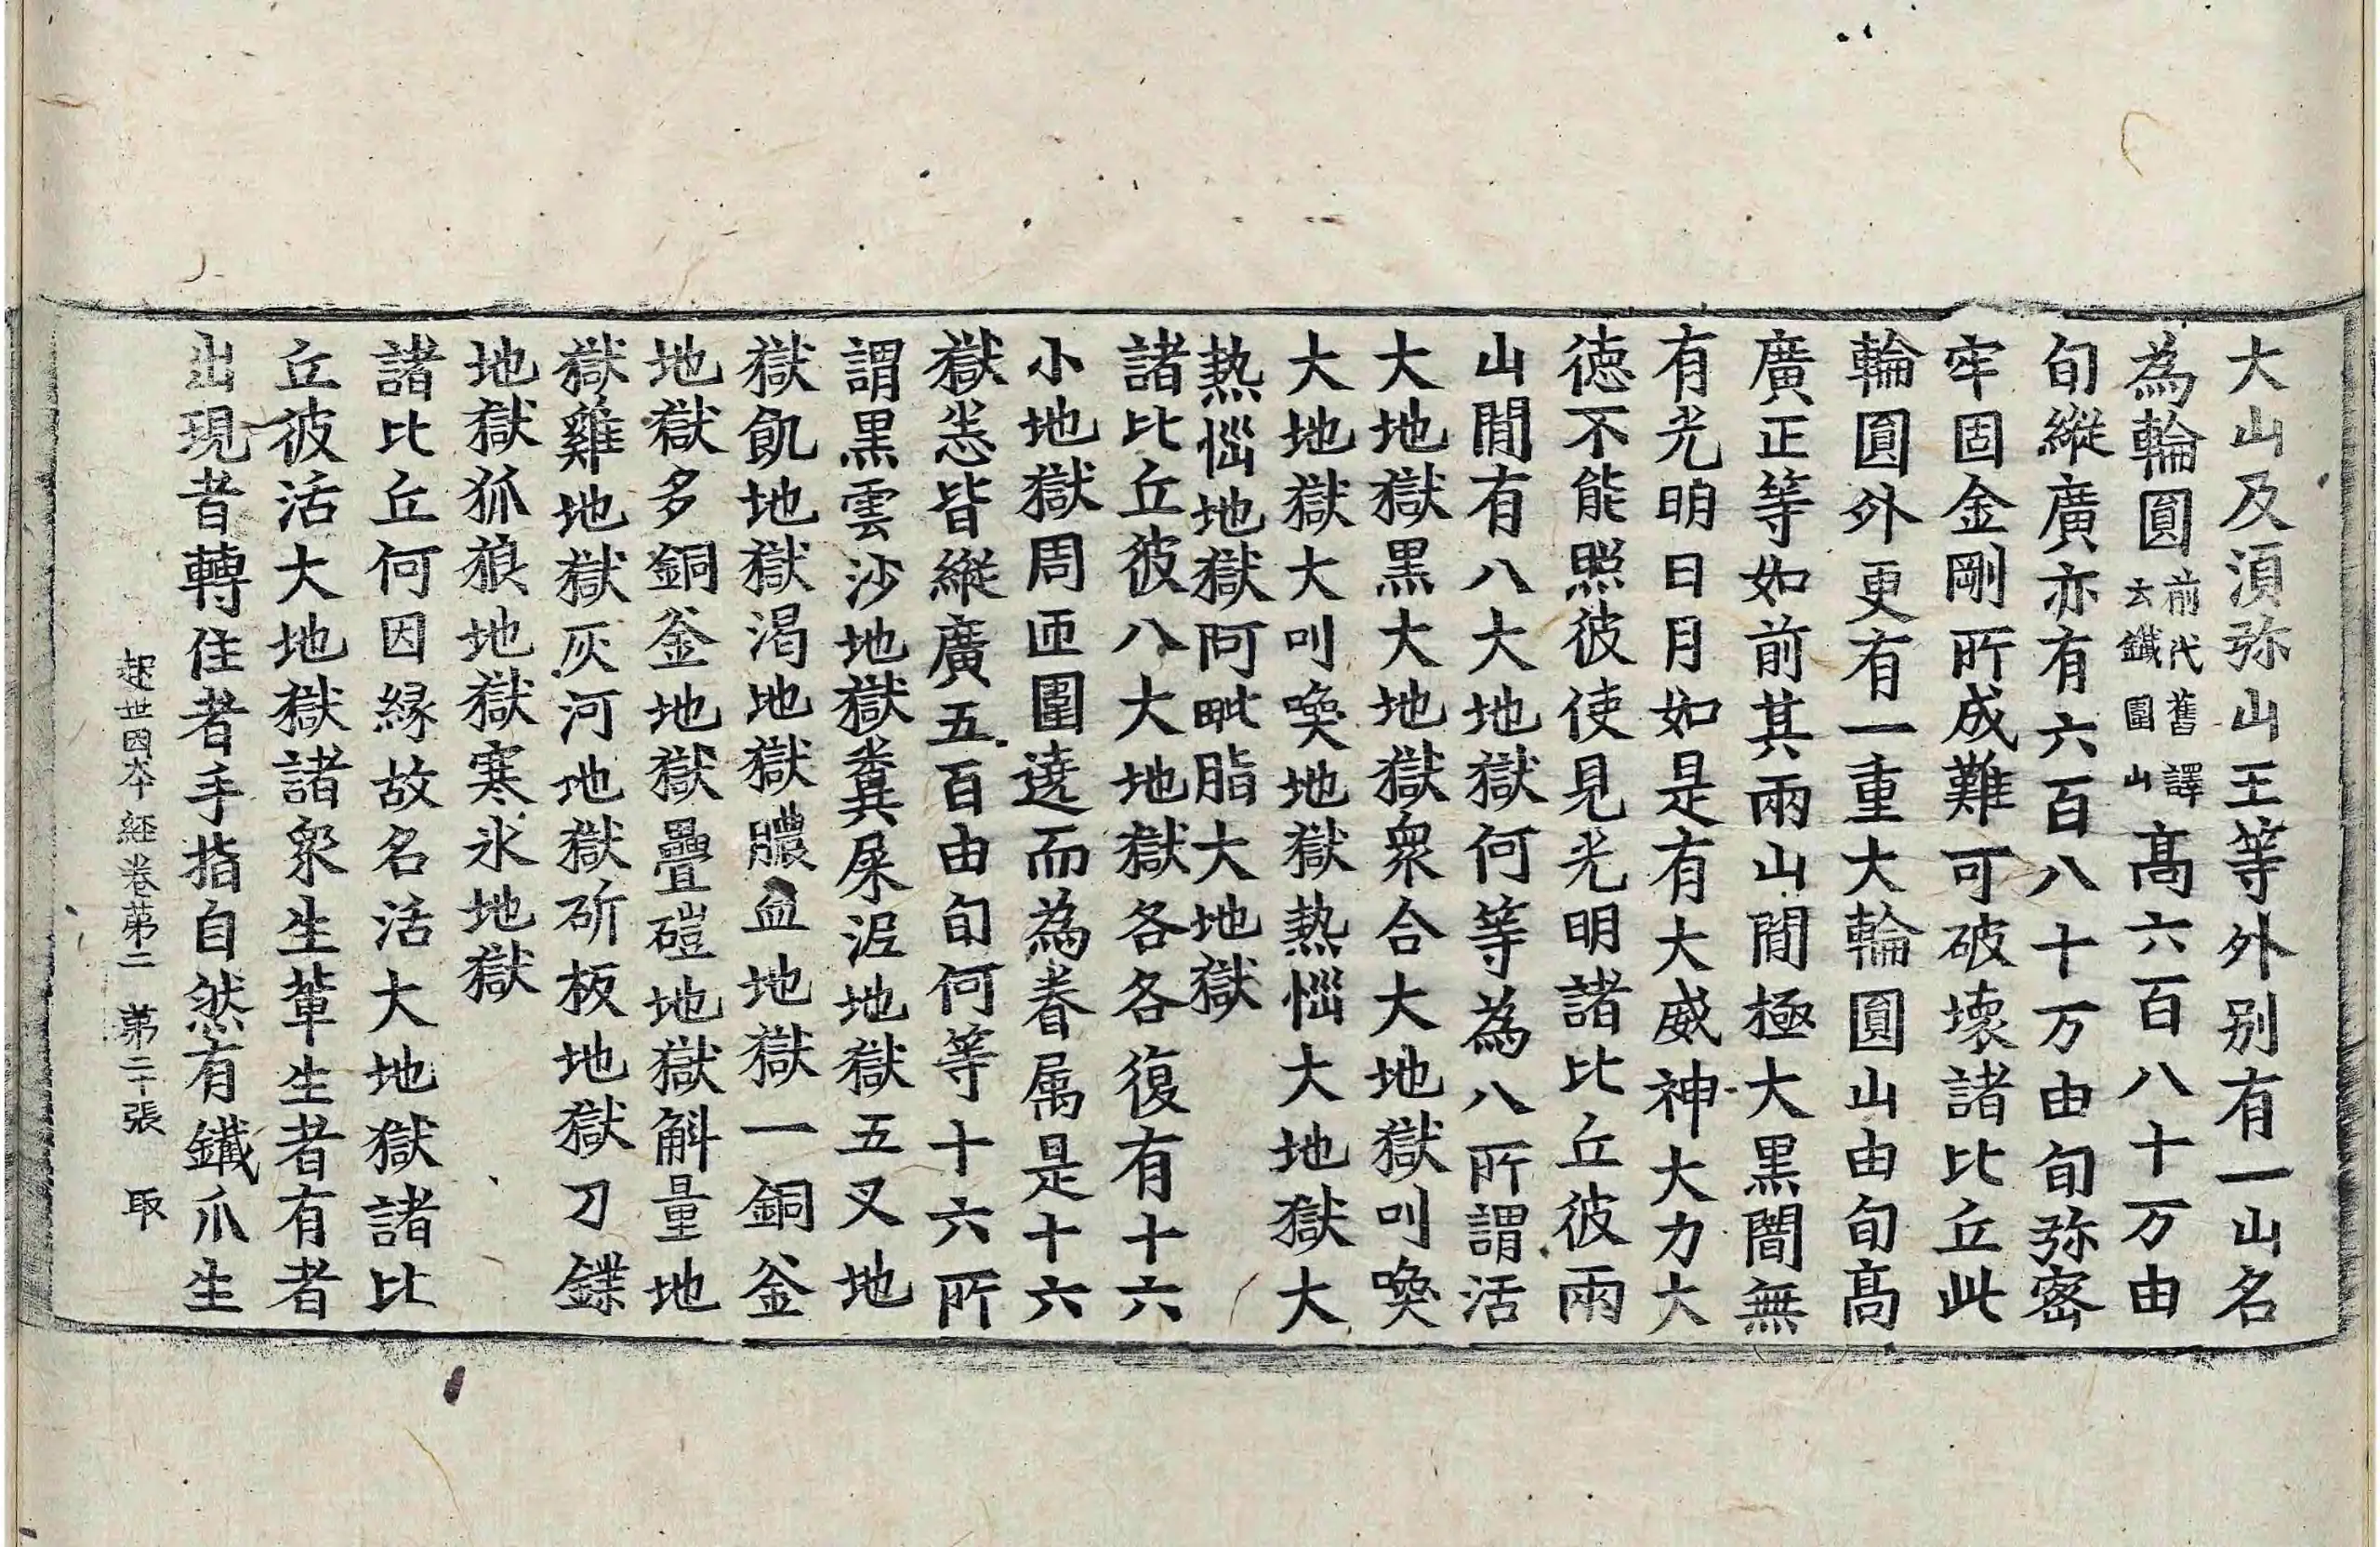 大山及湏弥山王等外别有一山名
為輪圓前代舊譯云鐵圍山髙六百八十万由
旬縱廣亦有六百八十万由旬弥宻
牢固金剛所成難可破壞諸比丘此
輪圓外更有一重大輪圓山由旬髙
廣正等如前其兩山閒極大黒闇無
有光明日月如是有大威神大力大
德不能照彼使見光明諸比丘彼兩
山閒有八大地獄何等為八所謂活
大地獄黒大地獄衆合大地獄叫喚
大地獄大叫喚地獄熱惱大地獄大
熱惱地獄阿毗脂大地獄
諸比丘彼八大地獄各各復有十六
小地獄周匝圍遶而為眷属是十六
獄悉皆縱廣五百由旬何等十六所
謂黒雲沙地獄糞屎泥地獄五叉地
獄飢地獄渴地獄膿血地獄一銅釜
地獄多銅釜地獄疊磑地獄斛量地
獄雞地獄灰河地獄斫板地獄刀鍱
地獄狐狼地獄寒氷地獄
諸比丘何因縁故名活大地獄諸比
丘彼活大地獄諸衆生軰生者有者
出現者轉住者手指自然有鐵爪生
起世因本經卷第二 第二十張 取